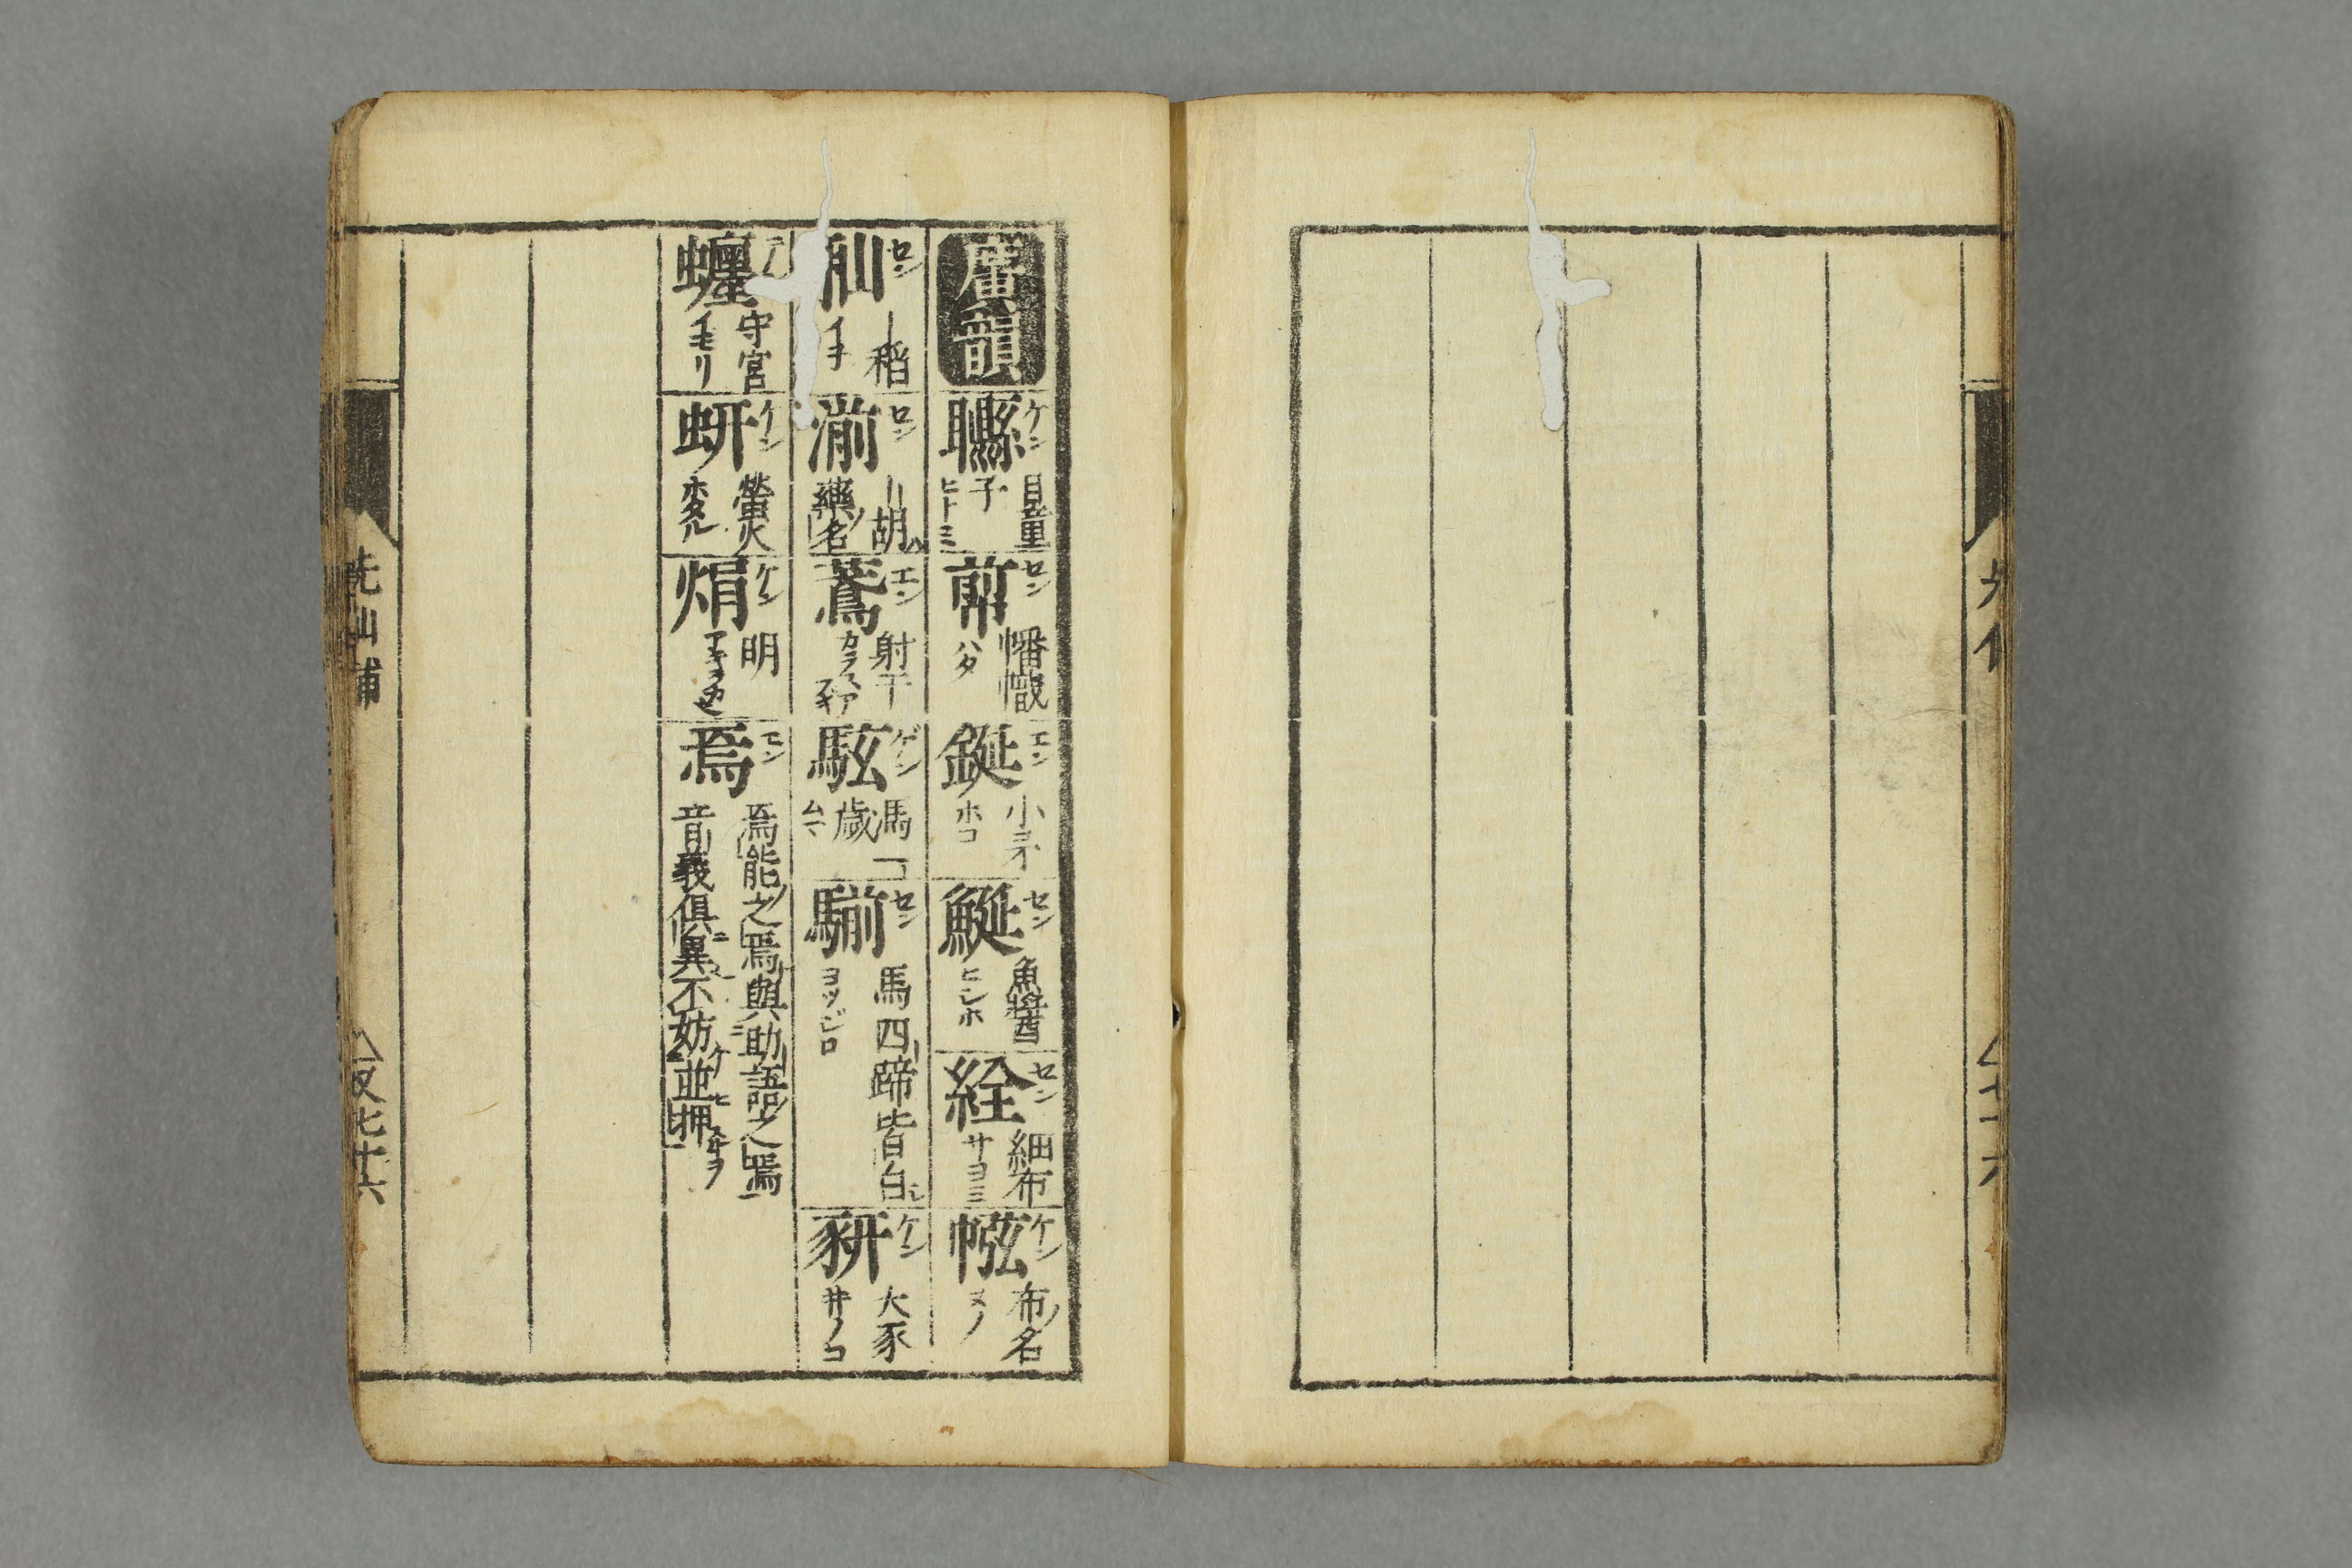 廣韻
矊 ケン 目童子 ヒトミ
㡐 セン 幡幟 ハタ
鋋 エン 小矛 ホコ
鯅 セン 魚醬 ヒシホ
絟 セン 細布 サヨミ
㡉 ケン 布ノ名 ヌノ
秈 セン 稻 イネ
湔 セン 胡 藥ノ名
鳶 エン 射干 カラスアフギ
駭 ゲン 馬一歲 ムマ
騚 セン 馬四蹄皆白 ヨツジロ
豣 ケン 大豕 井ノコ
蠦 守宮 イモリ
蚈 ケン 螢火 ホタル
焆 ケン 明
焉 エン 焉能之焉與助語之焉
音義俱異不妨並押
先仙補
六十六